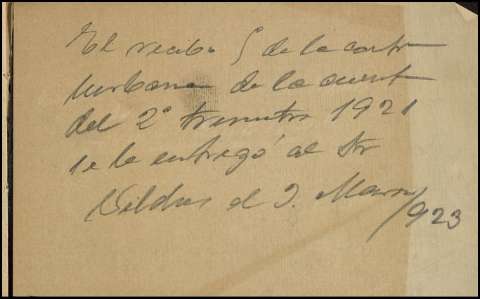 El recibo 5 de la contr
urbana de la cuent
del 2º trimestre 1921
se le entregó al Sr
el 2. Marzo/923